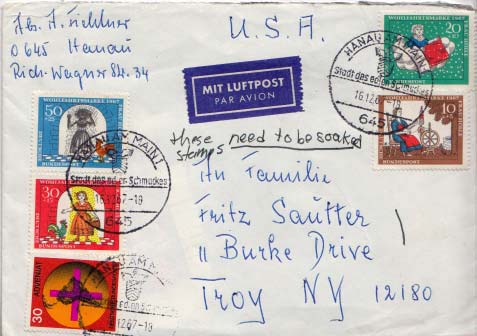 Abs. A. Füchtner
0645 Hanau
Rich-Wagner Str. 34
U.S.A.
MIT LUFTPOST
PAR AVION
WOHLFAHRTSMARKE 1967
20
HANAU AM MAIN 1
Stadt des edlen Schmuckes
16.12.67
645
WOHLFAHRTSMARKE 1967
10
BUNDESPOST
WOHLFAHRTSMARKE 1967
50
BUNDESPOST
HANAU AM MAIN 1
Stadt des edlen Schmuckes
16.12.67-18
645
30
BUNDESPOST
30 ADVENIAT
HANAU AM MAIN
.12.67-18
these need to be soaked
stamps
An Familie
Fritz Sautter
11 Burke Drive
Troy NY 12180